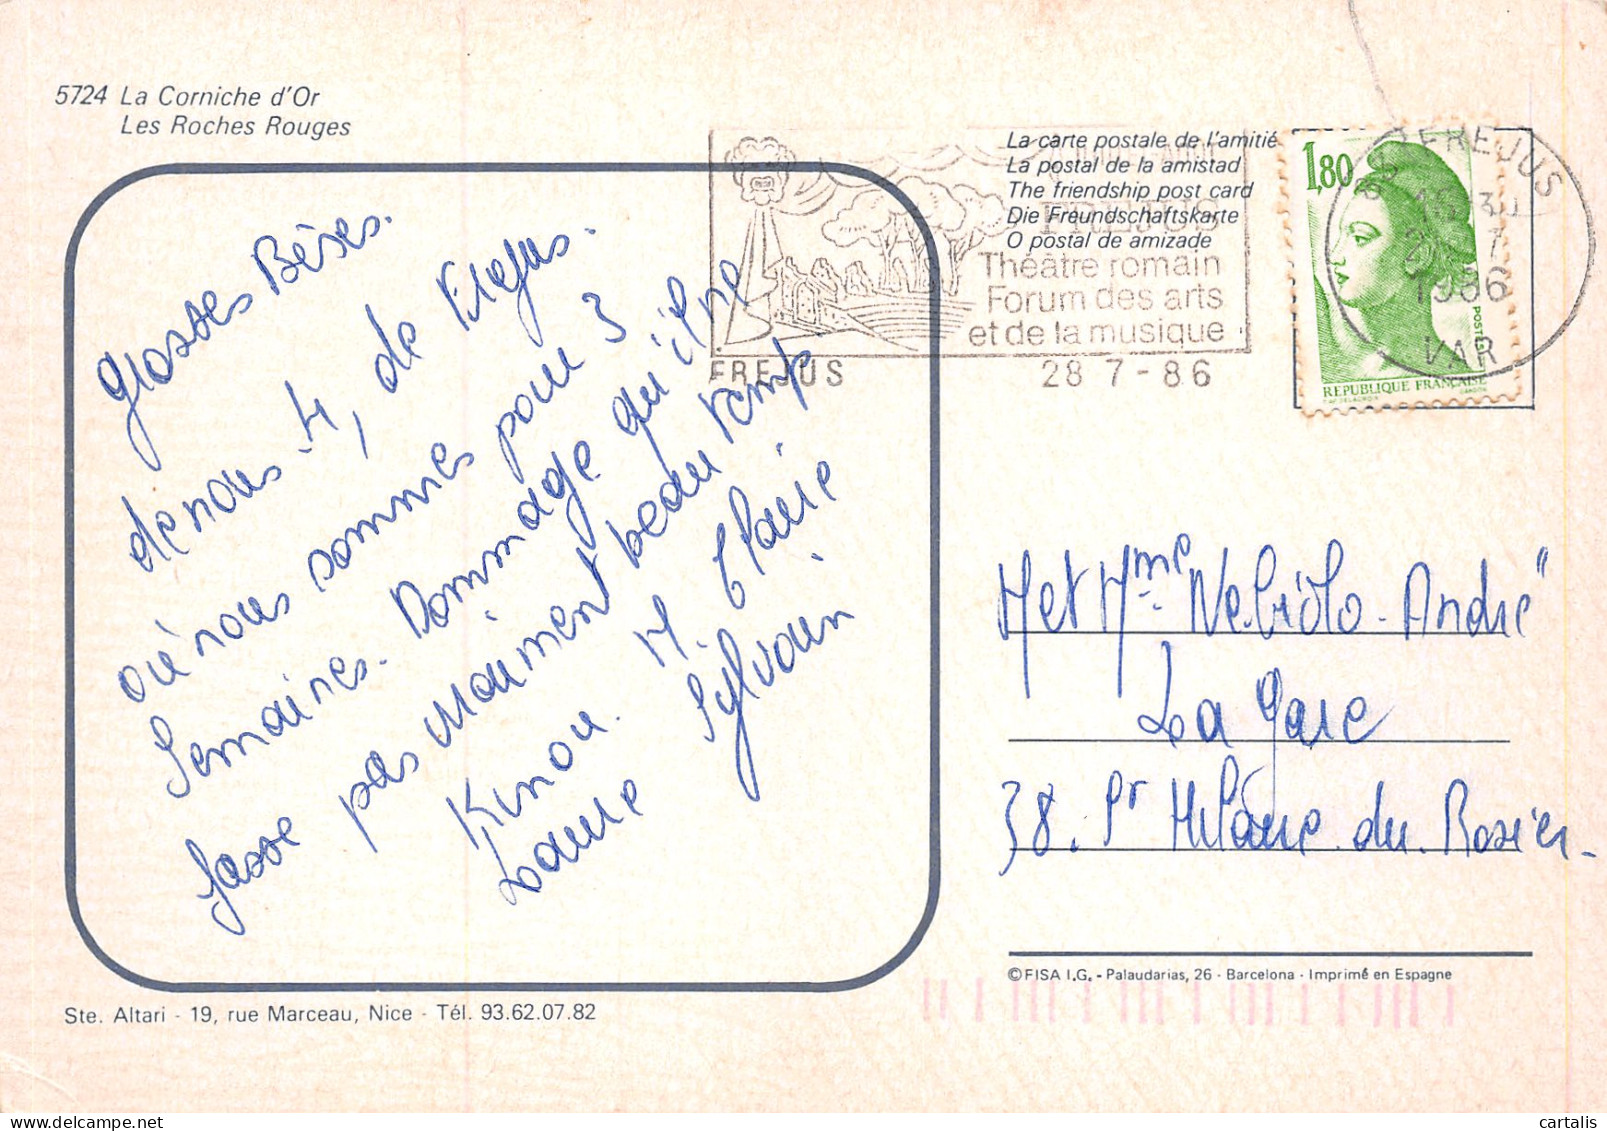 5724 La Corniche d'Or
Les Roches Rouges
Grosses Bises.
de nous 4, de Frejus.
où nous sommes pour 3
Semaines. Dommage qu'il ne
fasse pas vraiment beau temps
Kinou. M. Claire
Laure Sylvain
La carte postale de l'amitié
La postal de la amistad
The friendship post card
Die Freundschaftskarte
O postal de amizade
FREJUS
Théâtre romain
Forum des arts
et de la musique
FREJUS 28 7-86
1,80
POSTES
REPUBLIQUE FRANÇAISE
83 FREJUS
1986
VAR
M et Mme Nebiolo-André
La Gare
38. St Hilaire. du. Rosier_
©FISA I.G. - Palaudarias, 26 - Barcelona - Imprimé en Espagne
Ste. Altari - 19, rue Marceau, Nice - Tél. 93.62.07.82
cartalis